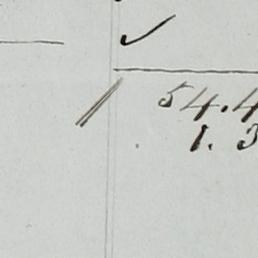 ✓
54.4
1.3